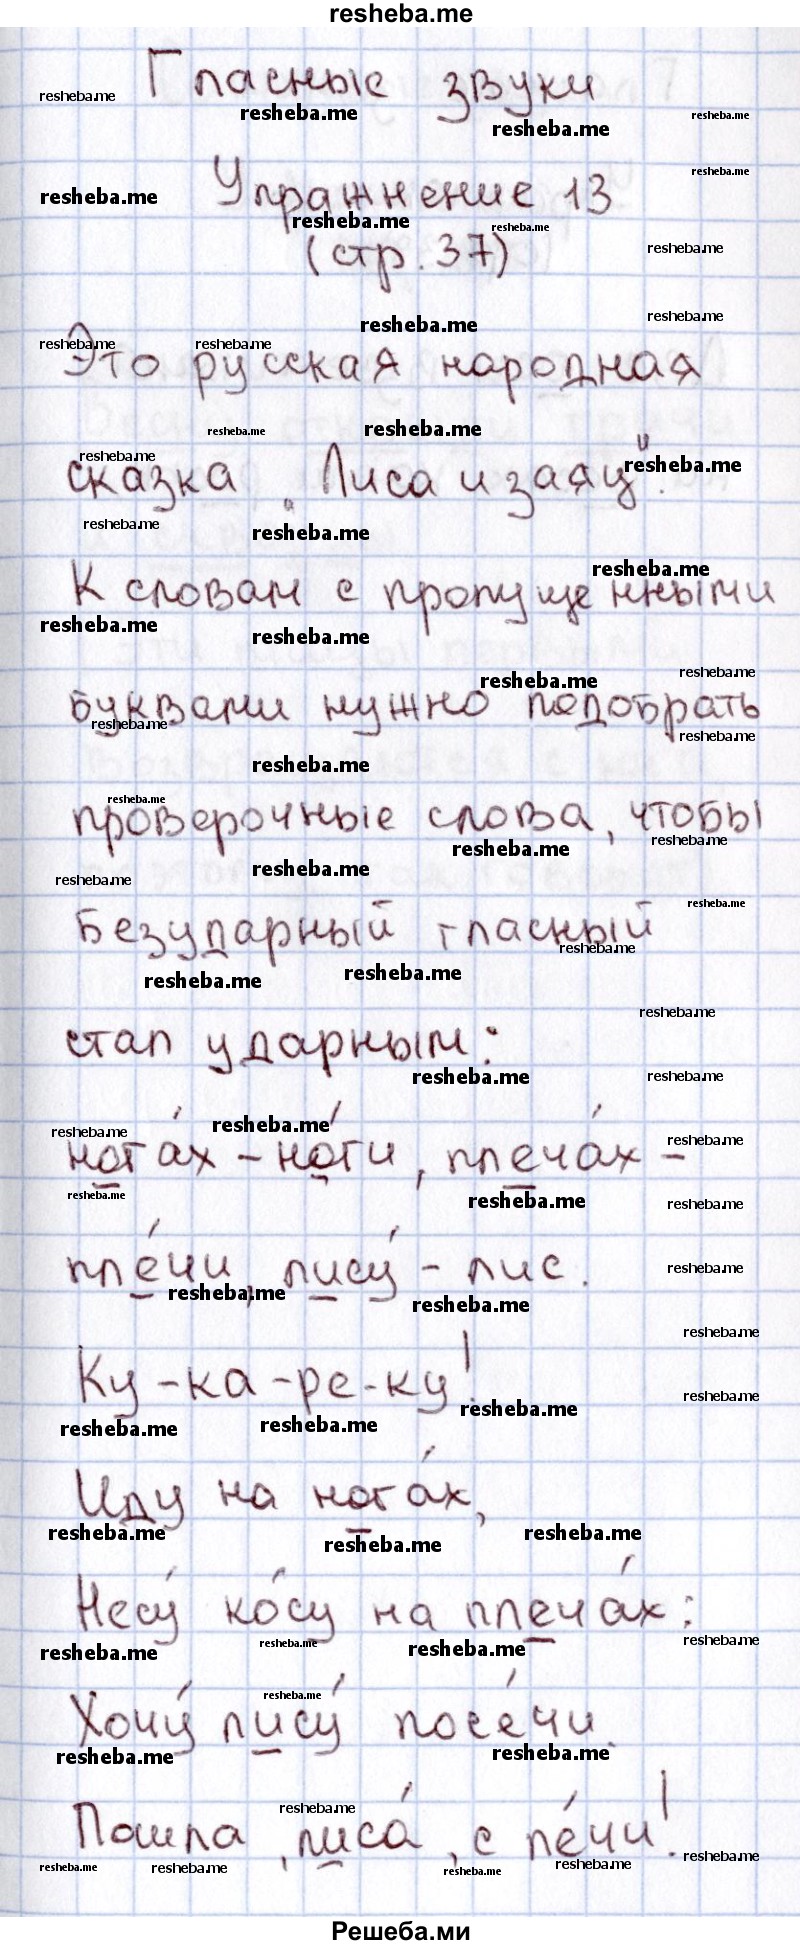 resheba.me
Гласные звуки
Упражнение 13
(стр. 37)
Это русская народная
сказка „Лиса и заяц".
К словам с пропущенными
буквами нужно подобрать
проверочные слова, чтобы
безударный гласный
стал ударным:
нога́х – но́ги, плеча́х –
пле́чи, лису́ – лис.
Ку-ка-ре-ку!
Иду на нога́х,
Несу́ ко́су на плеча́х:
Хочу́ лису́ посе́чи.
Пошла, лиса́, с пе́чи!
Решеба.ми